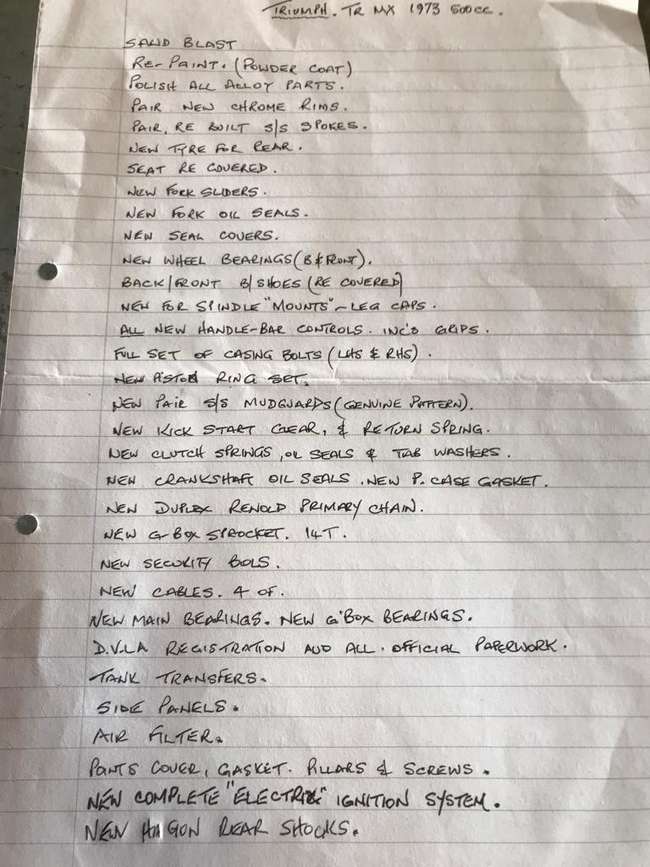 TRIUMPH. TR MX 1973 500cc.
SAND BLAST
RE-PAINT. (POWDER COAT)
POLISH ALL ALLOY PARTS.
PAIR NEW CHROME RIMS.
PAIR. RE BUILT S/S SPOKES.
NEW TYRE FOR REAR.
SEAT RE COVERED.
NEW FORK SLIDERS.
NEW FORK OIL SEALS.
NEW SEAL COVERS.
NEW WHEEL BEARINGS (B & FRONT).
BACK/FRONT B/SHOES (RE COVERED)
NEW FOR SPINDLE "MOUNTS" ~ LEG CAPS.
ALL NEW HANDLE-BAR CONTROLS. INC'S GRIPS.
FULL SET OF CASING BOLTS (LHS & RHS).
NEW PISTON RING SET.
NEW PAIR S/S MUDGUARDS (GENUINE PATTERN).
NEW KICK START GEAR, & RETURN SPRING.
NEW CLUTCH SPRINGS, OIL SEALS & TAB WASHERS.
NEW CRANKSHAFT OIL SEALS. NEW P. CASE GASKET.
NEW DUPLEX RENOLD PRIMARY CHAIN.
NEW G-BOX SPROCKET. 14T.
NEW SECURITY BOLS.
NEW CABLES. 4 OF.
NEW MAIN BEARINGS. NEW G'BOX BEARINGS.
D.V.L.A REGISTRATION AND ALL. OFFICIAL PAPERWORK.
TANK TRANSFERS.
SIDE PANELS.
AIR FILTER.
POINTS COVER, GASKET. PILLARS & SCREWS.
NEW COMPLETE "ELECTRIC" IGNITION SYSTEM.
NEW HAGON REAR SHOCKS.